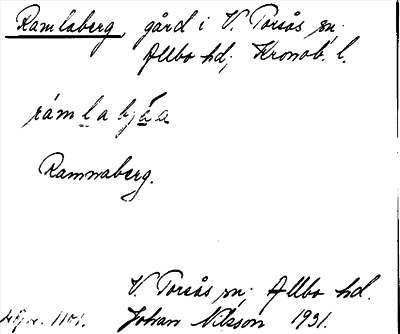 Ramlaberg, gård i V. Torsås sn;
Allbo hd; Kronob. l.
Ramnaberg.
V. Torsås sn; Allbo hd.
Johan Nilsson 1931.